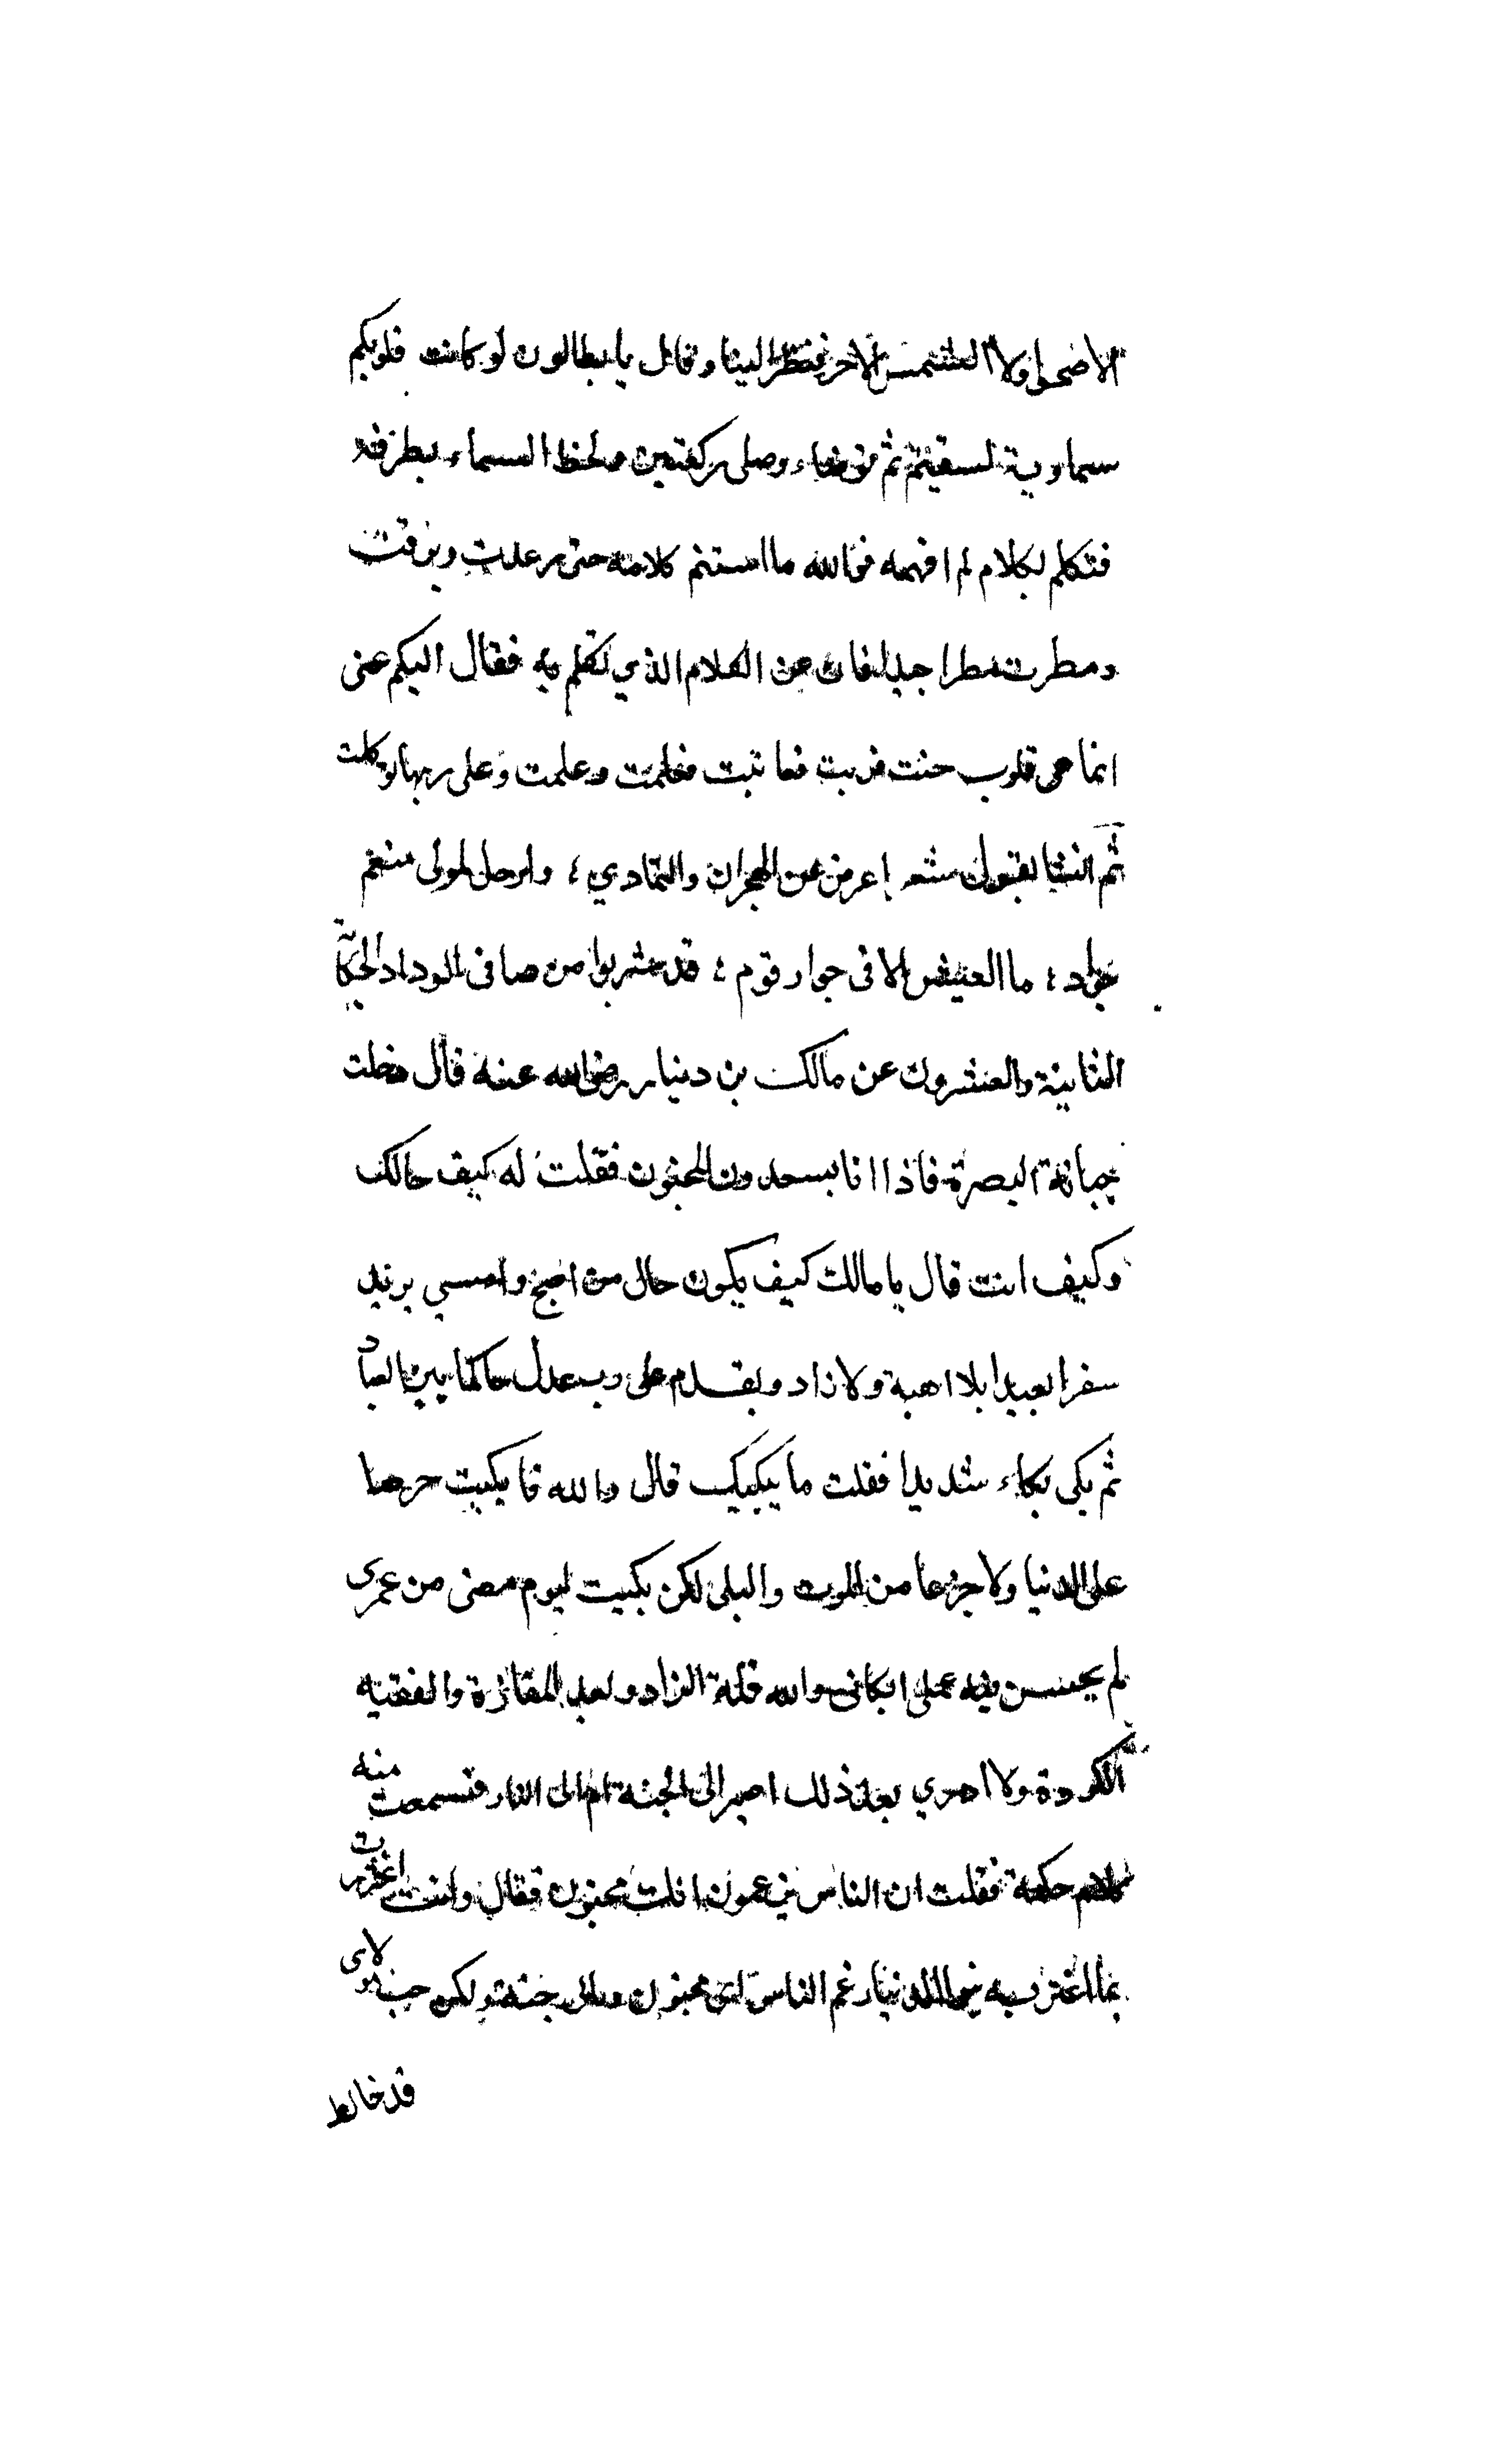 الاضحوا ولا الشمس الاحر فنظر الينا وقال يا بطالون لو كانت قلوبكم
سماوية لسقيتم ثم توضاء وصلى ركعتين ولحظ السماء بطرفه
فتكلم بكلام لم افهمه فوالله ما استتم كلامه حتى رعدت وبرقت
ومطرت مطرا جيدا عن الكلام الذي تكلم به فقال اليكم عنى
انما هى قلوب حنت فرنت فعاتبت فعلمت وعلمت وعلى ربها توكلت
ثم انشا يقول شعر اعرض عن الهجران والتمادي ؛ وارحل لمولى منعم
جواد ؛ ما العيش الا فى جوار قوم ؛ قد شربوا من صافى الوداد الحكاية
الثانية والعشرون عن مالك بن دينار رضى الله عنه قال دخلت
جبانة البصرة فاذا انا بسعدون المجنون فقلت له كيف حالك
وكيف انت قال يا مالك كيف يكون حال من اصبح وامسي يريد
سفرا بعيدا بلا اهبة ولا زاد ويقدم على رب عدل حاكما بين العباد
ثم بكى بكاء شديدا فقلت ما يبكيك قال والله ما بكيت حرصا
على الدنيا ولا جزعا من الموت والبلى لكن بكيت ليوم مضى من عمرى
لم يحسن فيه عملى ابكانى والله قلة الزاد وبعد المفازة والعقبة
الكودة ولا ادري بعد ذلك اصير الى الجنة ام الى النار فسمعت منه
كلام حكمة فقلت ان الناس يزعمون انك مجنون فقال وانت اغتررت
بما اغتر به بنوا الدنيا زعم الناس انى مجنون ومابى جنة ولكن حب مولاى
قد خالط